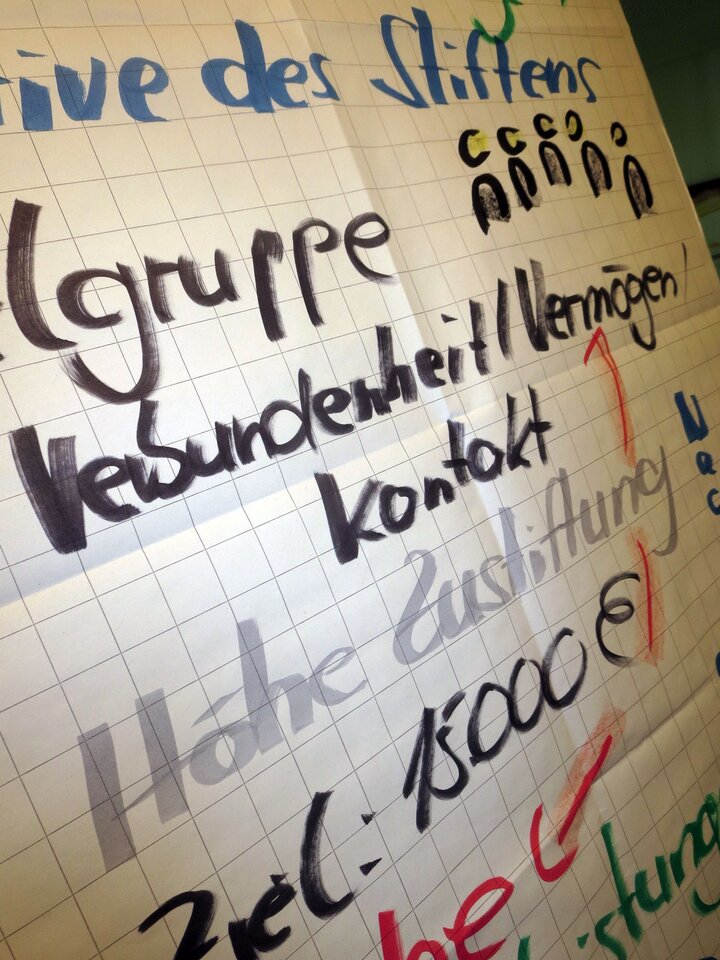 tive des Stiftens
lgruppe
Verbundenheit / Vermögen /
Kontakt
Höhe Zustiftung
Ziel: 15000 €